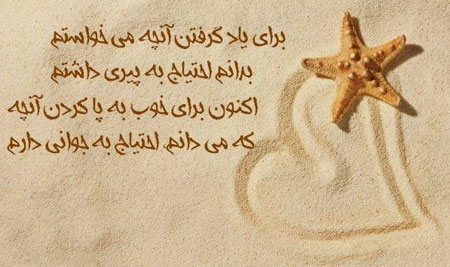 برای یاد گرفتن آنچه می خواستم
بدانم احتیاج به پیری داشتم
اکنون برای خوب به پا کردن آنچه
که می دانم احتیاج به جوانی دارم